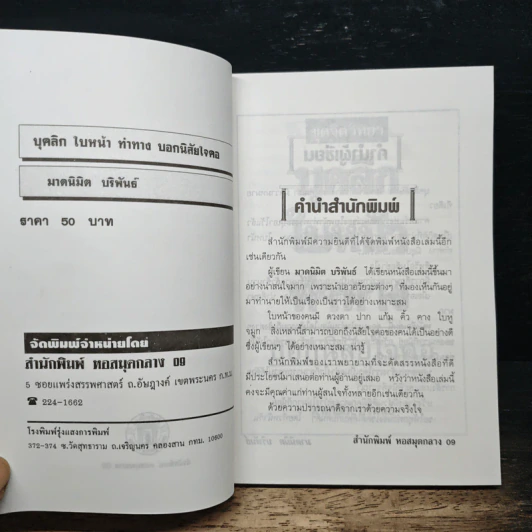 บุคลิก ใบหน้า ท่าทาง บอกนิสัยใจคอ
มาตนิมิต บริพันธ์
ราคา 50 บาท
จัดพิมพ์จำหน่ายโดย
สำนักพิมพ์ หอสมุดกลาง 09
5 ซอยแพร่งสรรพศาสตร์ ถ.อัษฎางค์ เขตพระนคร ก.ท.ม.
☎ 224-1662
โรงพิมพ์รุ่งแสงการพิมพ์
372-374 ซ.วัดสุทธาราม ถ.เจริญนคร คลองสาน กทม. 10600
คำนำสำนักพิมพ์
สำนักพิมพ์มีความยินดีที่ได้จัดพิมพ์หนังสือเล่มนี้อีก
เช่นเดียวกัน
ผู้เขียน มาตนิมิต บริพันธ์ ได้เขียนหนังสือเล่มนี้ขึ้นมา
อย่างน่าสนใจมาก เพราะนำเอาอวัยวะต่างๆ ที่มองเห็นกันอยู่
มาทำนายให้เป็นเรื่องเป็นราวได้อย่างเหมาะสม
ใบหน้าของคนมี ดวงตา ปาก แก้ม คิ้ว คาง ใบหู
จมูก สิ่งเหล่านี้สามารถบอกถึงนิสัยใจคอของคนได้เป็นอย่างดี
ซึ่งผู้เขียนๆ ได้อย่างเหมาะสม น่ารู้
สำนักพิมพ์ของเราพยายามที่จะคัดสรรหนังสือที่ดี
มีประโยชน์มาเสนอต่อท่านผู้อ่านอยู่เสมอ หวังว่าหนังสือเล่มนี้
คงจะมีคุณค่าแก่ท่านผู้สนใจทั้งหลายอีกเช่นเดียวกัน
ด้วยความปรารถนาดีจากเราด้วยความจริงใจ
สำนักพิมพ์ หอสมุดกลาง 09